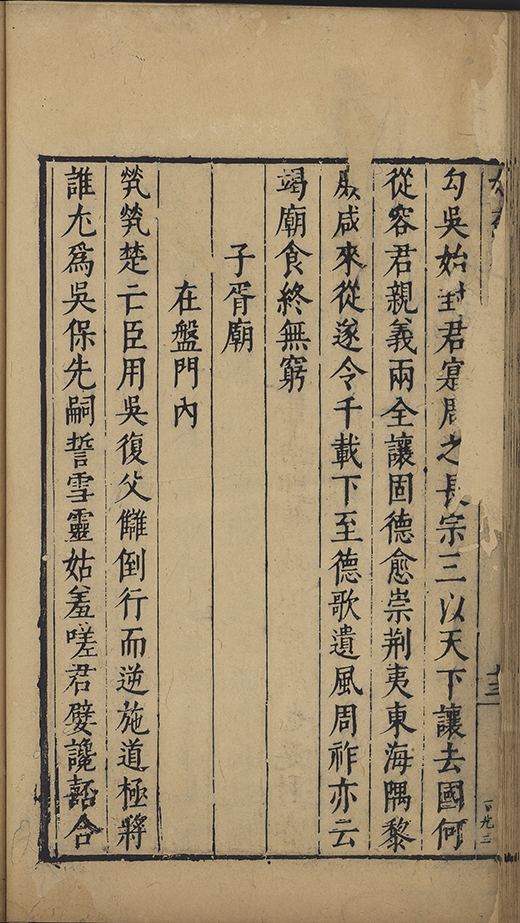 勾吳始封君寔周之長宗三以天下讓去國何
從容君親義兩全讓固德愈崇荆夷東海隅黎
咸來從遂令千載下至德歌遺風周祚亦云
竭廟食終無窮
子胥廟
在盤門內
煢煢楚亡臣用吳復父讎倒行而逆施道極將
誰尤爲吳保先嗣誓雪靈姑羞嗟君嬖讒嚭合
十三